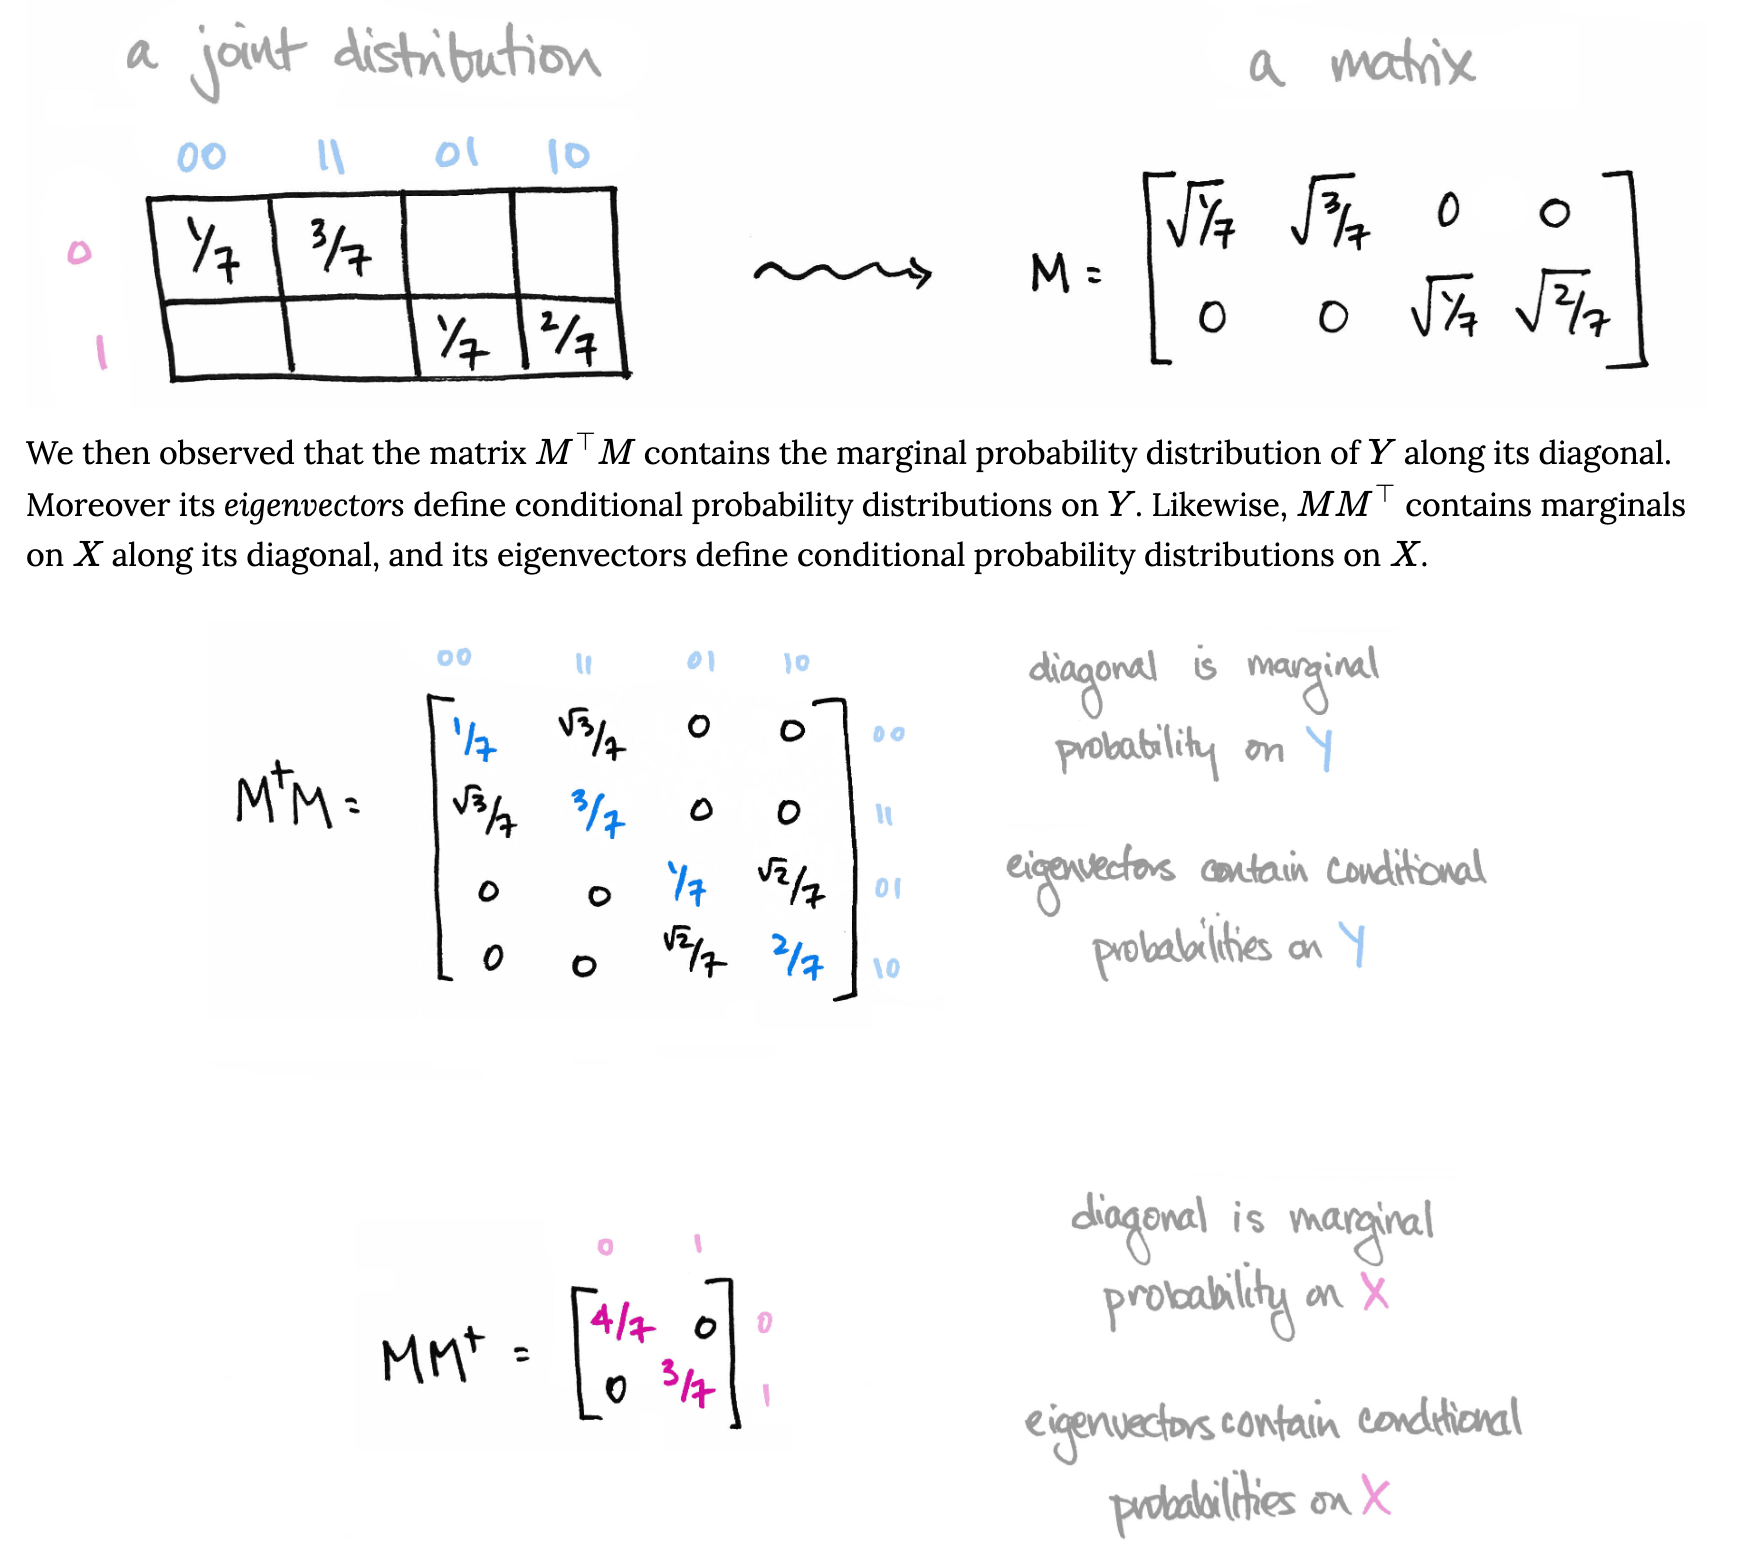 a joint distribution
a matrix
00 11 01 10
0 1/7 3/7
1 1/7 2/7
M = [ √1/7 √3/7 0 0
0 0 √1/7 √2/7 ]
We then observed that the matrix M⊤M contains the marginal probability distribution of Y along its diagonal.
Moreover its eigenvectors define conditional probability distributions on Y. Likewise, MM⊤ contains marginals
on X along its diagonal, and its eigenvectors define conditional probability distributions on X.
00 11 01 10
M†M =
1/7 √3/7 0 0 00
√3/7 3/7 0 0 11
0 0 1/7 √2/7 01
0 0 √2/7 2/7 10
diagonal is marginal
probability on Y
eigenvectors contain conditional
probabilities on Y
0 1
MM† =
4/7 0 0
0 3/7 1
diagonal is marginal
probability on X
eigenvectors contain conditional
probabilities on X